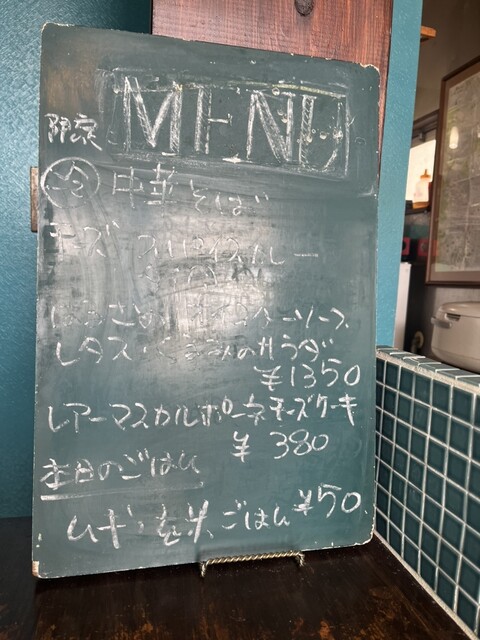 MENU
限定
冷 中華そば
チーズ スパイスカレー
レタス・くるみのサラダ
¥1350
レアーマスカルポーネチーズケーキ
¥380
本日のごはん
ムギ・玄米ごはん ¥50